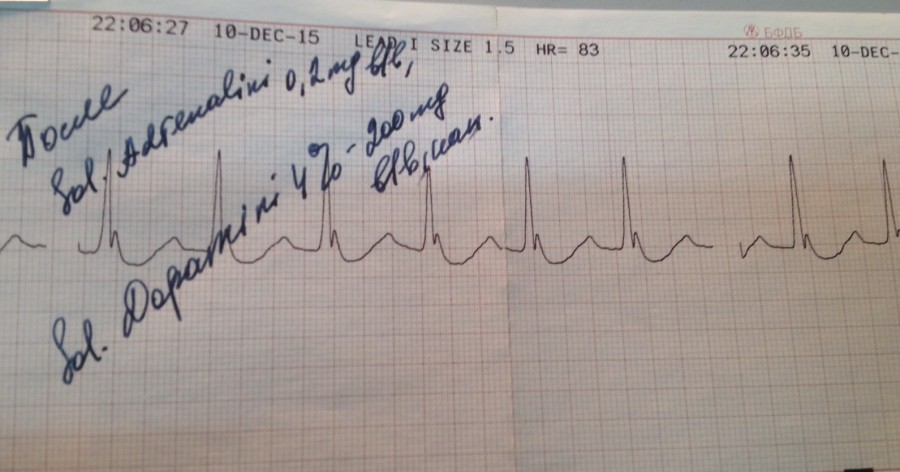 22:06:27 10-DEC-15 LEAD I SIZE 1.5 HR= 83
БФДБ
22:06:35 10-DEC-
После
Sol. Adrenalini 0,2 mg в/в,
Sol. Dopamini 4% - 200 mg
в/в, кап.